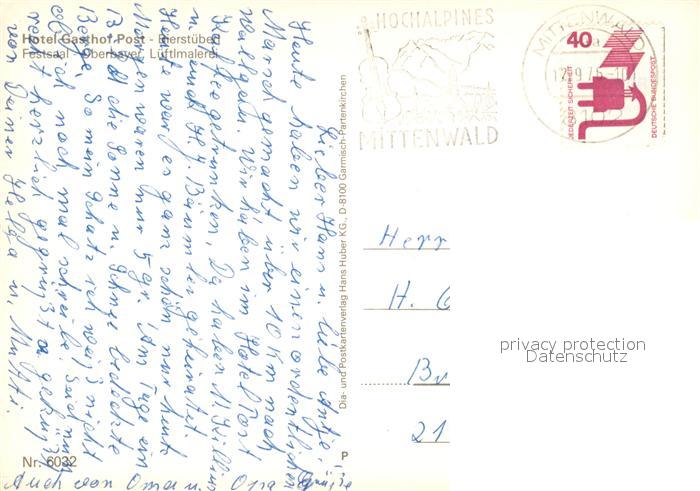 Hotel-Gasthof Post - Bierstüberl
Festsaal - Oberbayer. Lüftlmalerei
HOCHALPINES
MITTENWALD
MITTENWALD
40
JEDERZEIT SICHERHEIT
DEUTSCHE BUNDESPOST
Lieber Hans u. liebe Antje,
Heut haben wir einen ordentlichen
Marsch gemacht über 10 km nach
Wallgau. Wir haben im Hotel Post
Kaffeegetrunken. Da haben
u. geheiratet.
Heute war es ganz schön nur heut
Morgen waren nur 5 gr. Am Tage ein
Bisschen Sonne u. Schnee bedeckte
Berge. So mein Schatz ich weiß nicht
ob ich noch mal schreibe. Seid nun
recht herzlich gegrüßt
von Deiner Helga u. Mutti.
Auch von Oma u. Opa Grüße
Dia- und Postkartenverlag Hans Huber KG., D-8100 Garmisch-Partenkirchen
Herr
H.
21
privacy protection
Datenschutz
P
Nr. 6032